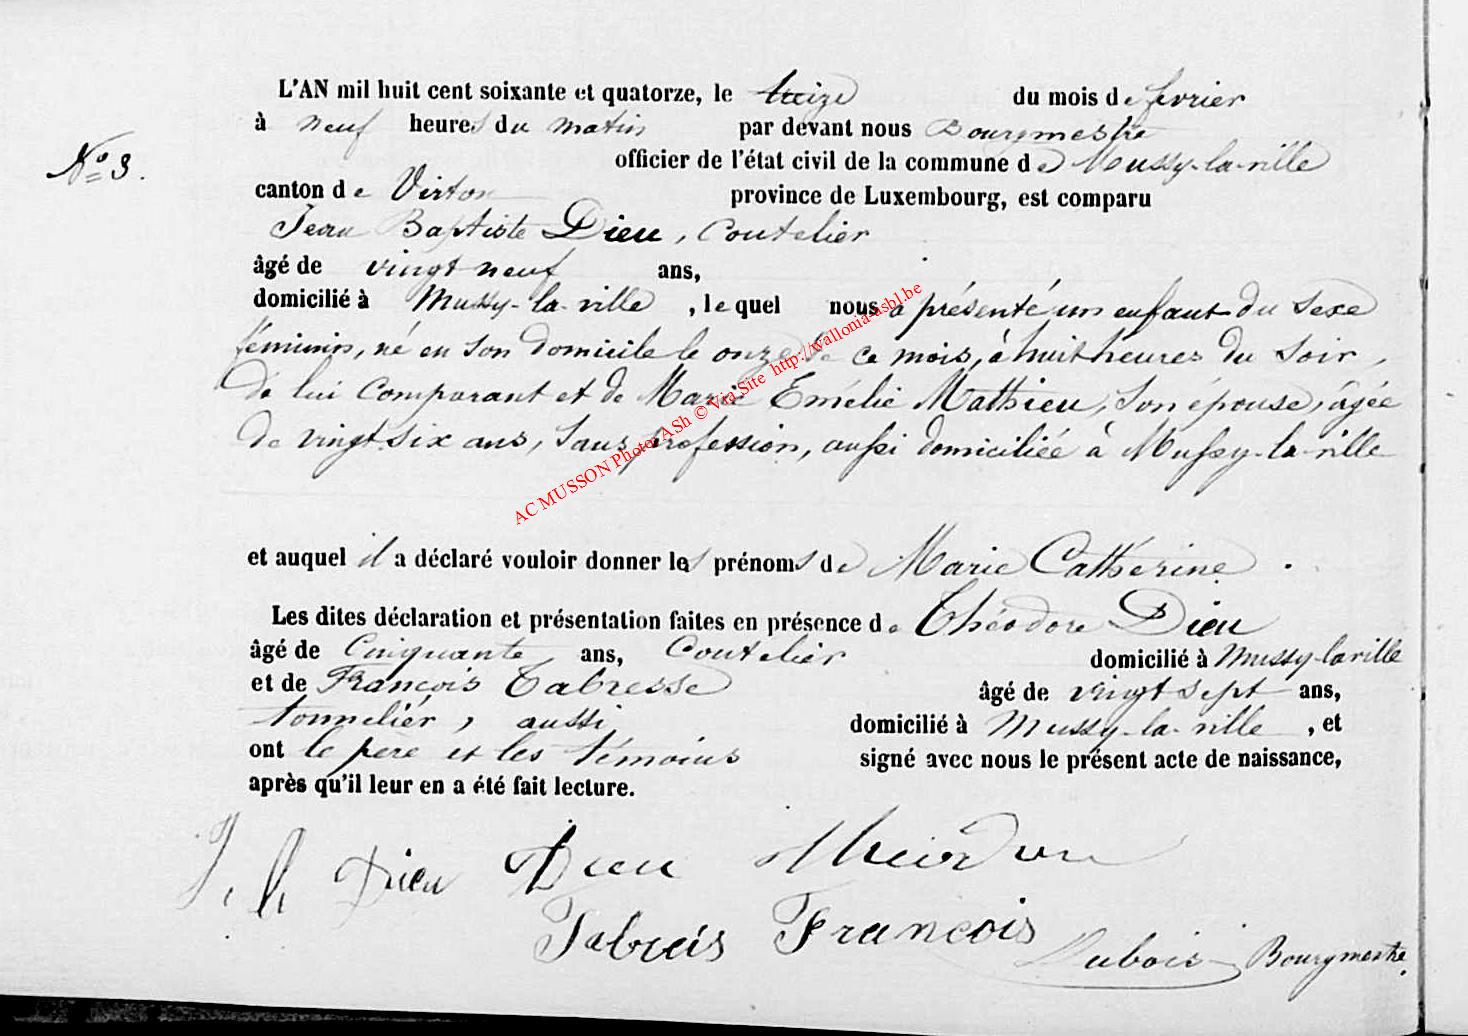 L'AN mil huit cent soixante et quatorze, le treize du mois de fevrier
à neuf heures du matin par devant nous Bourgmestre
N° 3.
officier de l'état civil de la commune de Mussy-la-ville
canton de Virton province de Luxembourg, est comparu
Jean Baptiste Dieu, Coutelier
âgé de vingt neuf ans,
domicilié à Mussy-la-ville, lequel nous a présenté un enfant du sexe
féminin, né en son domicile le onze de ce mois, à huit heures du soir,
de lui comparant et de Marie Emélie Mathieu, son épouse, âgée
de vingt six ans, sans profession, aussi domiciliée à Mussy-la-ville
AC MUSSON Photos ASh © Via Site http://wallonia-asbl.be
et auquel il a déclaré vouloir donner les prénoms de Marie Cathérine.
Les dites déclaration et présentation faites en présence de Théodore Dieu
âgé de Cinquante ans, Coutelier domicilié à Mussy-la ville
et de François Tabresse âgé de vingt sept ans,
tonnelier, aussi domicilié à Mussy-la-ville, et
ont le père et les témoins signé avec nous le présent acte de naissance,
après qu'il leur en a été fait lecture.
J. B. Dieu Dieu
François
Dubois Bourgmestre.